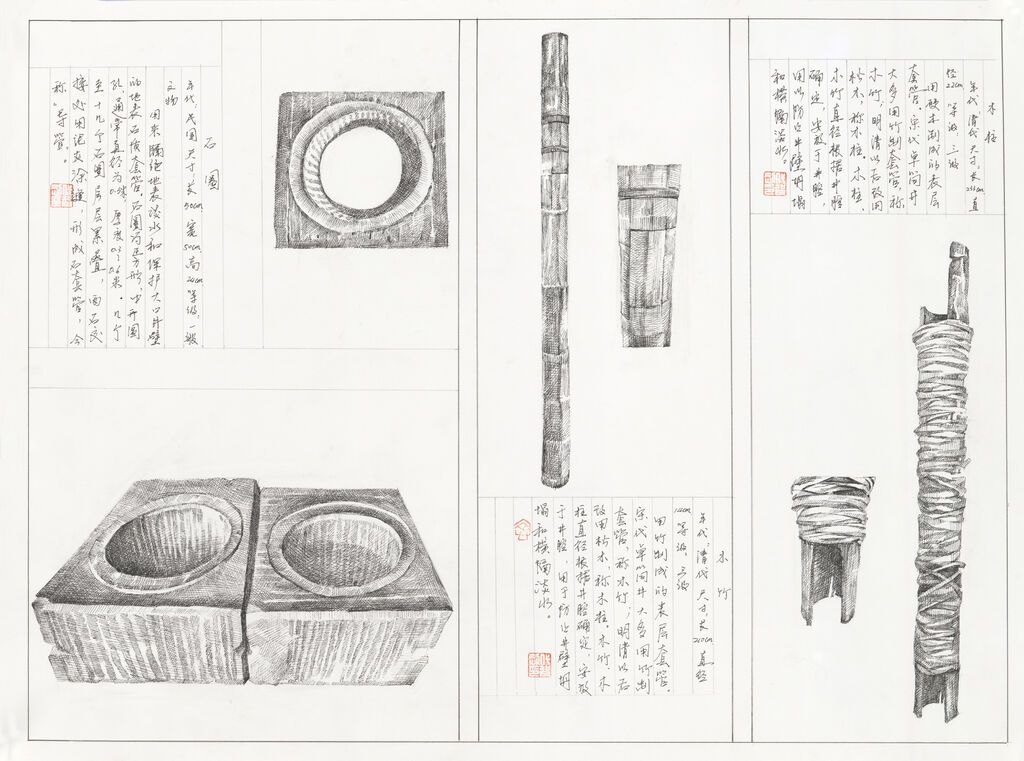 木柱
年代 清代 尺寸:长 cm 直
径22cm 等级 三级
用 木制成的表层
套管。宋代卓筒井
大多用竹制套管,称
木竹,明清以后改用
柃木,称木柱。木柱、
木竹直径根据井腔
确定,安放于井腔
用以防止井壁坍塌
和横隔淡水。
木竹
年代:清代 尺寸:长210cm 直径
14cm 等级 三级
用竹制成的表层套管。
宋代卓筒井大多用竹制
套管,称木竹,明清以后
改用柃木,称木柱。木竹、木
柱直径根据井腔确定,安放
于井腔,用于防止井壁坍
塌和横隔淡水。
石圈
年代:民国 尺寸:长50cm 宽50cm 高20cm 等级:一般
文物
用来隔绝地表淡水和保护大口井壁
的地表石质套管。石圈为正方形,中开圆
孔,通常直径为 厚度 0.6米。几个
至十几个石圈层层累叠,两石交
接处用泥灰涂缝,形成石套管,今
称“导管”。